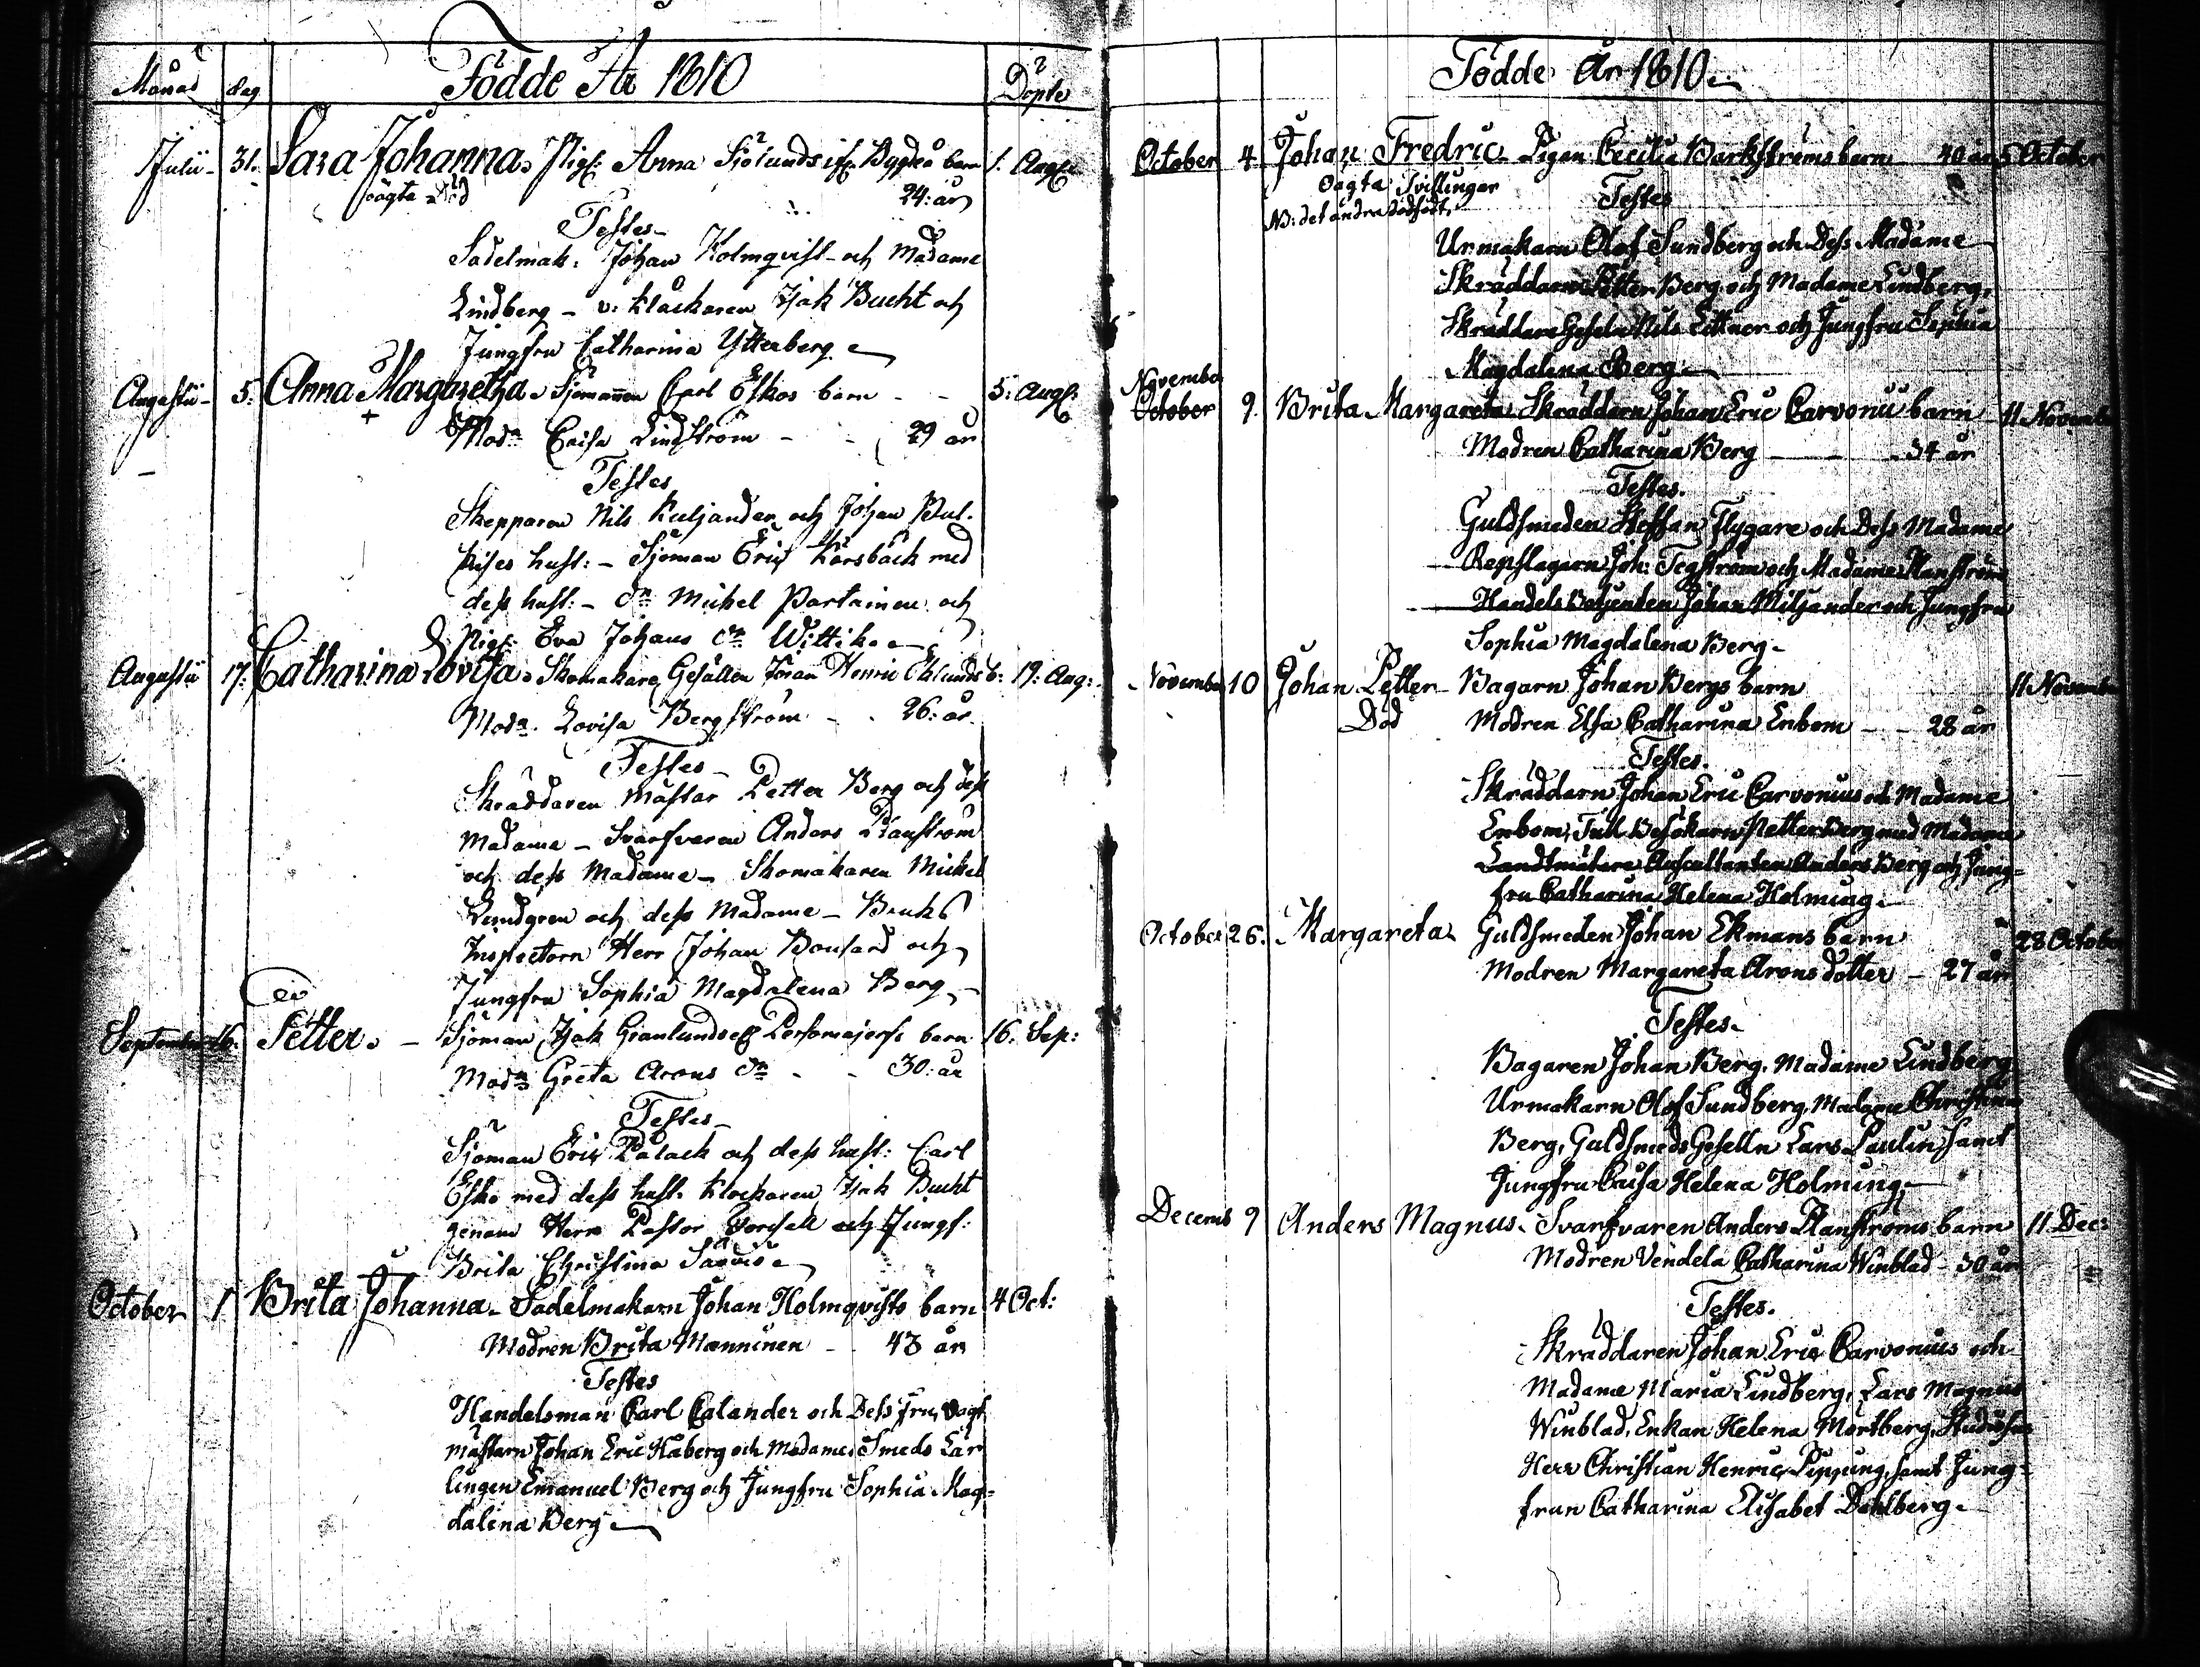 Månad dag Födde År 1810 Döpte
Julii 31. Sara Johanna. Pig: Anna Sjölunds barn 1. Aug:
oägta Död 24: år
Testes
Sadelmak: Johan Holmqvist och Madame
Lindberg – v: klåckaren Isak Bucht och
Jungfru Catharina Ytterberg
Augustii 5. Anna Margaretha. Sjömannen Carl Eskos barn 5: Aug:
Modn Caisa Lindström 29 år
Testes
Skepparen Nils och Johan Pul-
hust: – Sjöman Eric med
dess hust: – dn Michel Partainen och
Pig: Eva Johans dr Wittik
Augustii 17: Catharina Lovisa. Skomakare Gesällen Henric Eklunds b: 19: Aug:
Modn. Lovisa Bergström 26: år
Testes
Skräddaren Mästar Petter Berg och dess
Madame – Svarfvaren Anders Planström
och dess Madame – Skomakaren Michel
Lundgren och dess Madame – Bruks
Inspectorn Herr Johan och
Jungfru Sophia Magdalena Berg
September 16. Petter. Sjöman Isak Granlunds barn 16. Sep:
Modn Greta Arons dr 30: år
Testes
Sjöman Eric Palack och dess hust: Carl
Esko med dess hust. klockaren Isak Bucht
genom Herr Pastor och Jungf:
Brita Christina
October 1 Brita Johanna. Sadelmakarn Johan Holmqvists barn 4 Oct:
Modren Brita Manninen 43 år
Testes
Handelsman Carl Calander och Dess fru, Vagt
mästarn Johan Eric Håberg och Madame, Smeds Lär
lingen Emanuel Berg och Jungfru Sophia Mag=
dalena Berg
Födde År 1810
October 4. Johan Fredric Pigan Cecilia Barkströms barn 40 år 5 October
Oägta Tvillingar
NB: det andra dödfödt
Testes
Urmakarn Olof Sundberg och Dess Madame
Skräddarn Petter Berg och Madame Lindberg,
Skräddare Geseln Nils Littner och Jungfru Sophia
Magdalena Berg
November
October 9. Brita Margareta. Skräddarn Johan Eric Carvonii barn 11 November
Modren Catharina Berg 34 år
Testes.
Guldsmeden Steffan Flygare och Dess Madame
Repslagarn Joh: Tegström och Madame Planström
Handels Betjenten Johan Miljander och Jungfru
Sophia Magdalena Berg
November 10 Johan Petter Bagarn Johan Bergs barn 11 November
Död Modren Elsa Catharina Enbom 28 år
Testes.
Skräddarn Johan Eric Carvonius och Madame
Enbom, Tull Besökarn Petter Berg med Madame
Landtmätare Auscultanten Anders Berg och Jung=
fru Catharina Helena Holming
October 26. Margareta Guldsmeden Johan Ekmans barn 28 October
Modren Margareta Arons dotter 27 år
Testes
Bagaren Johan Berg, Madame Lindberg
Urmakarn Olof Sundberg, Madame Christina
Berg, Guldsmeds Geselln Lars Paulin samt
Jungfru Caisa Helena Holming
Decemb 9 Anders Magnus. Svarfvaren Anders Planströms barn 11 Dec:
Modren Vendela Catharina Winblad 30 år
Testes.
Skräddaren Johan Eric Carvonius och
Madame Maria Lindberg, Lars Magnus
Winblad, Enkan Helena Mörtberg,
Herr Christian Henric Pipping, samt Jung=
frun Catharina Elisabet Dahlberg